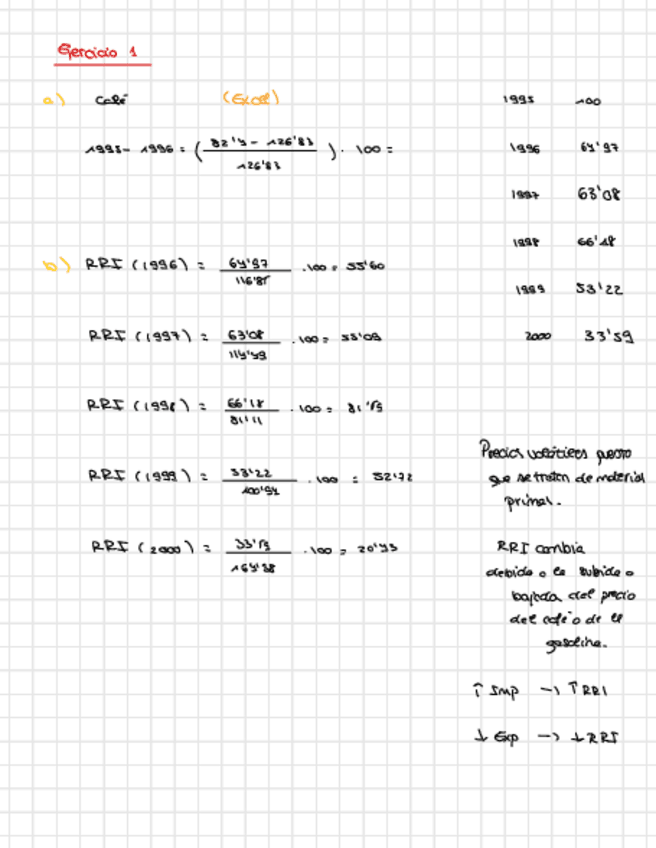 Ejercicio 1
a) Café (Excel)
1995 - 1996 = ( 82'4 - 126'83 / 126'83 ) · 100 =
1995 100
1996 64'97
1997 63'08
1998 66'18
1999 53'22
2000 33'59
b) RRI (1996) = 64'97 / 116'85 · 100 = 55'60
RRI (1997) = 63'08 / 114'49 · 100 = 55'09
RRI (1998) = 66'18 / 81'11 · 100 = 81'59
RRI (1999) = 53'22 / 100'94 · 100 = 52'72
RRI (2000) = 33'59 / 164'38 · 100 = 20'43
Precios volátiles puesto
que se traten de material
primal.
RRI cambia
debido a la subida o
bajada del precio
del café o de la
gasolina.
↑ Imp → ↑ RRI
↓ Exp → ↓ RRI